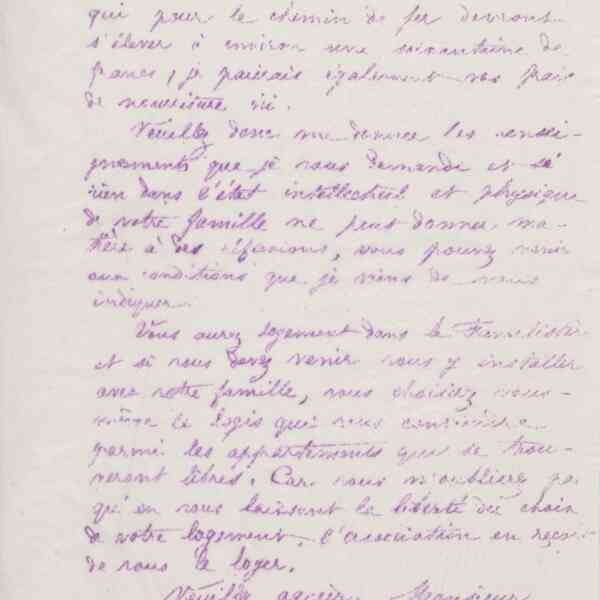 qui pour le chemin de fer devront
s'élever à environ une soixantaine de
francs, je paierais également vos frais
de nourriture ici.
Veuillez donc me donner les rensei-
gnements que je vous demande et si
rien dans l'état intellectuel et physique
de votre famille ne peut donner ma-
tière à des réflexions, vous pouvez venir
aux conditions que je viens de vous
indiquer.
Vous aurez logement dans le Familistère
et si vous devez venir vous y installer
avec votre famille, vous choisirez vous-
même le logis qui vous conviendra
parmi les appartements qui se trou-
veront libres. Car vous n'oubliez pas
qu'en vous laissant la liberté du choix
de votre logement, l'association en
de vous le loger.
Veuillez agréer, Monsieur